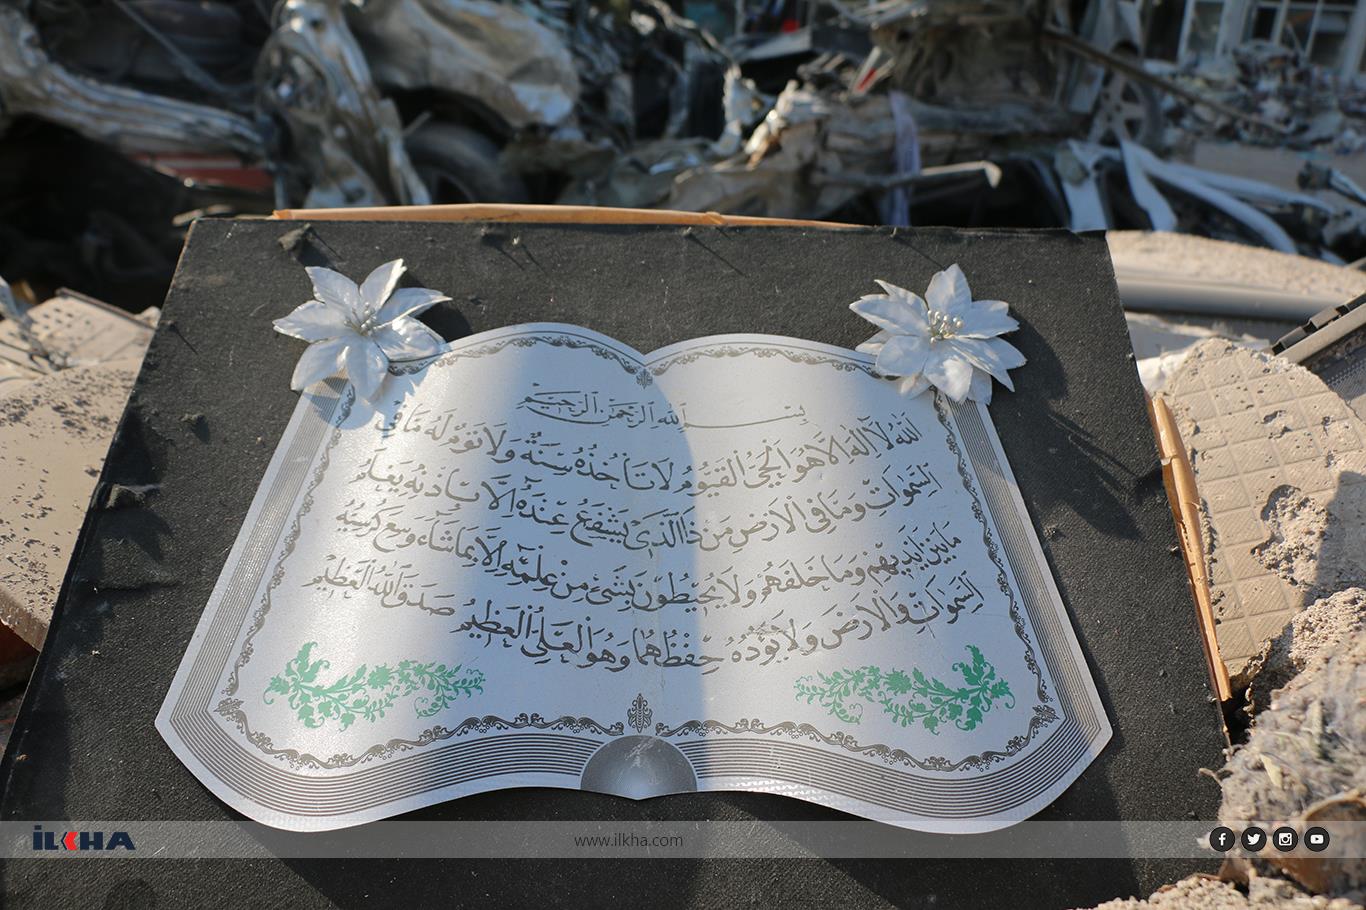 بِسْمِ اللّٰهِ الرَّحْمٰنِ الرَّحِيمِ
اَللّٰهُ لَا اِلٰهَ اِلَّا هُوَ الْحَيُّ الْقَيُّومُ لَا تَأْخُذُهُ سِنَةٌ وَلَا نَوْمٌ لَهُ مَا فِي
السَّمٰوَاتِ وَمَا فِي الْاَرْضِ مَنْ ذَا الَّذِي يَشْفَعُ عِنْدَهُ اِلَّا بِاِذْنِهِ يَعْلَمُ
مَا بَيْنَ اَيْدِيهِمْ وَمَا خَلْفَهُمْ وَلَا يُحِيطُونَ بِشَيْءٍ مِنْ عِلْمِهِ اِلَّا بِمَا شَاءَ وَسِعَ كُرْسِيُّهُ
السَّمٰوَاتِ وَالْاَرْضَ وَلَا يَؤُدُهُ حِفْظُهُمَا وَهُوَ الْعَلِيُّ الْعَظِيمُ صَدَقَ اللّٰهُ الْعَظِيمُ
İLKHA
www.ilkha.com